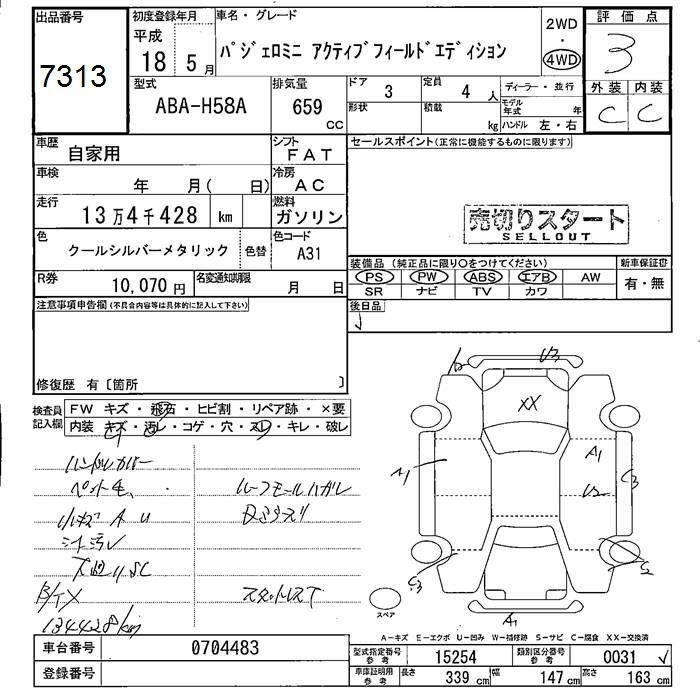 出品番号
7313
初度登録年月
平成
18年 5月
車名・グレード
パジェロミニ アクティブフィールドエディション
2WD
・
4WD
評価点
3
外装 内装
C C
型式
ABA-H58A
排気量
659
CC
ドア
3
定員
4 人
形状
積載
kg
ディーラー・並行
モデル年式 年
ハンドル 左・右
車歴
自家用
シフト
FAT
車検
年 月( 日)
冷房
AC
走行
13万4千428 km
燃料
ガソリン
色
クールシルバーメタリック
色替
色コード
A31
R券
10,070 円
名変通知期限
月 日
セールスポイント(正常に機能するものに限ります)
売切りスタート
SELLOUT
装備品 (純正品に限り○をつけてください)
新車保証書
PS PW ABS エアB AW
有・無
SR ナビ TV カワ
後日品
注意事項申告欄(不具合内容等は具体的に記入して下さい)
修復歴 有〔箇所 〕
検査員記入欄
FW キズ・飛石・ヒビ割・リペア跡・×要
内装 キズ・汚レ・コゲ・穴・スレ・キレ・破レ
ハンドルカバー
ペット毛、
ルーフモールハガレ
A U
シート汚レ
B/イX
スタットレスT
134428km
U3
XX
A1
A1
U2
C3
C3
S
A1
スペア
A－キズ E－エクボ U－凹み W－補修跡 S－サビ C－腐食 XX－交換済
車台番号
0704483
登録番号
型式指定番号 参考
15254
類別区分番号 参考
0031
車庫証明用 参考
長さ 339 cm
幅 147 cm
高さ 163 cm